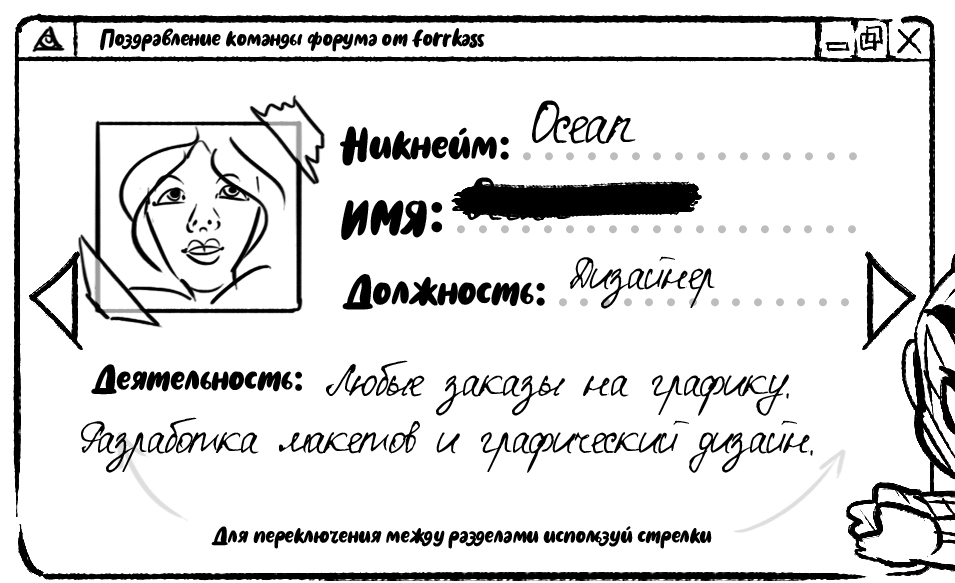 Поздравление команды форума от forrkass
Никнейм: Ocean
ИМЯ:
Должность: Дизайнер
Деятельность: Любые заказы на графику.
Разработка макетов и графический дизайн.
Для переключения между разделами используй стрелки